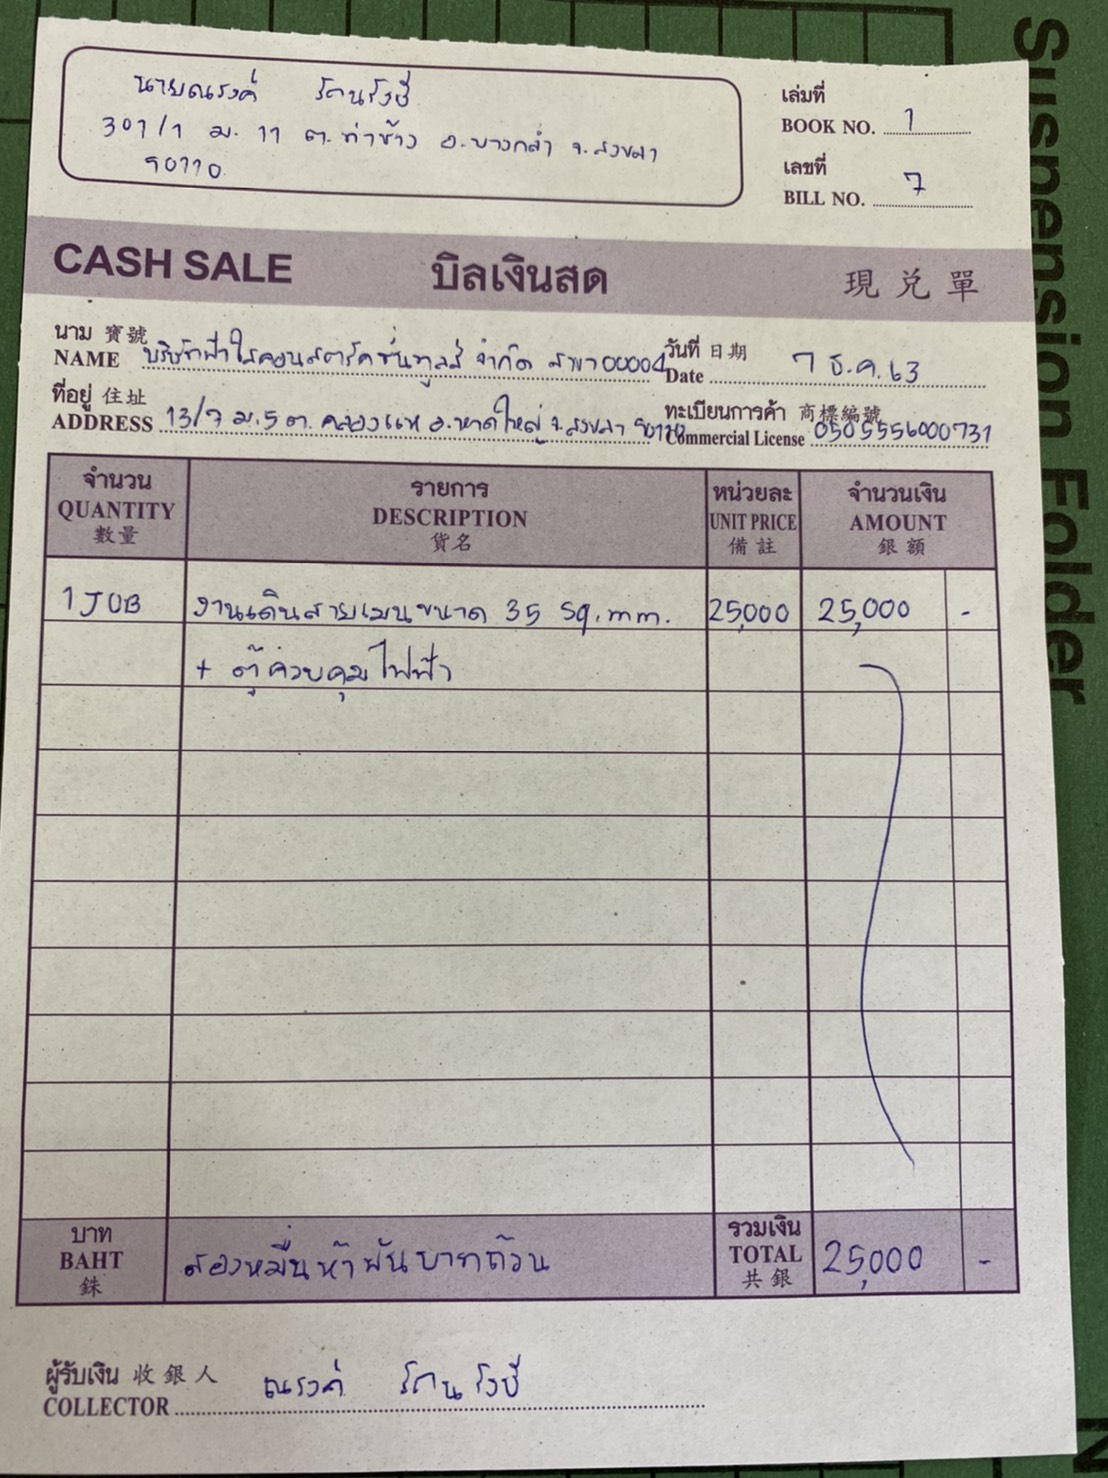 นายณรงค์ รัตนรังษี
301/1 ม.11 ต.ท่าช้าง อ.บางกล่ำ จ.สงขลา
90110
เล่มที่
BOOK NO. 1
เลขที่
BILL NO. 7
CASH SALE บิลเงินสด 現兌單
นาม 寶號
NAME บริษัทฟ้าใสคอนสตรัคชั่นทูลส์ จำกัด สาขา 00004
วันที่ 日期
Date 7 ธ.ค.63
ที่อยู่ 住址
ADDRESS 13/7 ม.5 ต.คลองแห อ.หาดใหญ่ จ.สงขลา 90110
ทะเบียนการค้า 商標編號
Commercial License 0505556000731
จำนวน รายการ หน่วยละ จำนวนเงิน
QUANTITY DESCRIPTION UNIT PRICE AMOUNT
數量 貨名 備註 銀額
1 JOB งานเดินสายเมนขนาด 35 sq.mm. 25,000 25,000 -
+ ตู้ควบคุมไฟฟ้า
บาท รวมเงิน
BAHT สองหมื่นห้าพันบาทถ้วน TOTAL 25,000 -
銖 共銀
ผู้รับเงิน 收銀人
COLLECTOR ณรงค์ รัตนรังษี
Suspension Folder
N